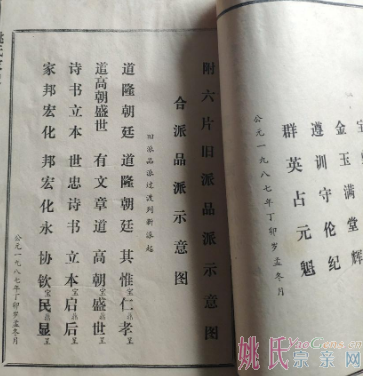 宝
金玉满堂辉
遵训守伦纪
群英占元魁
公元一九八七年丁卯岁孟冬月
附六片旧派品派示意图
合派品派示意图
旧派品派过渡到新派起
道隆朝廷 道隆朝廷 其惟仁孝
道高朝盛世 有文章道 高朝盛世
诗书立本 世忠诗书 立本启后
家邦宏化 邦宏化永 协钦民显
公元一九八七年丁卯岁孟冬月
姚氏宗亲网
YaoGens.cn